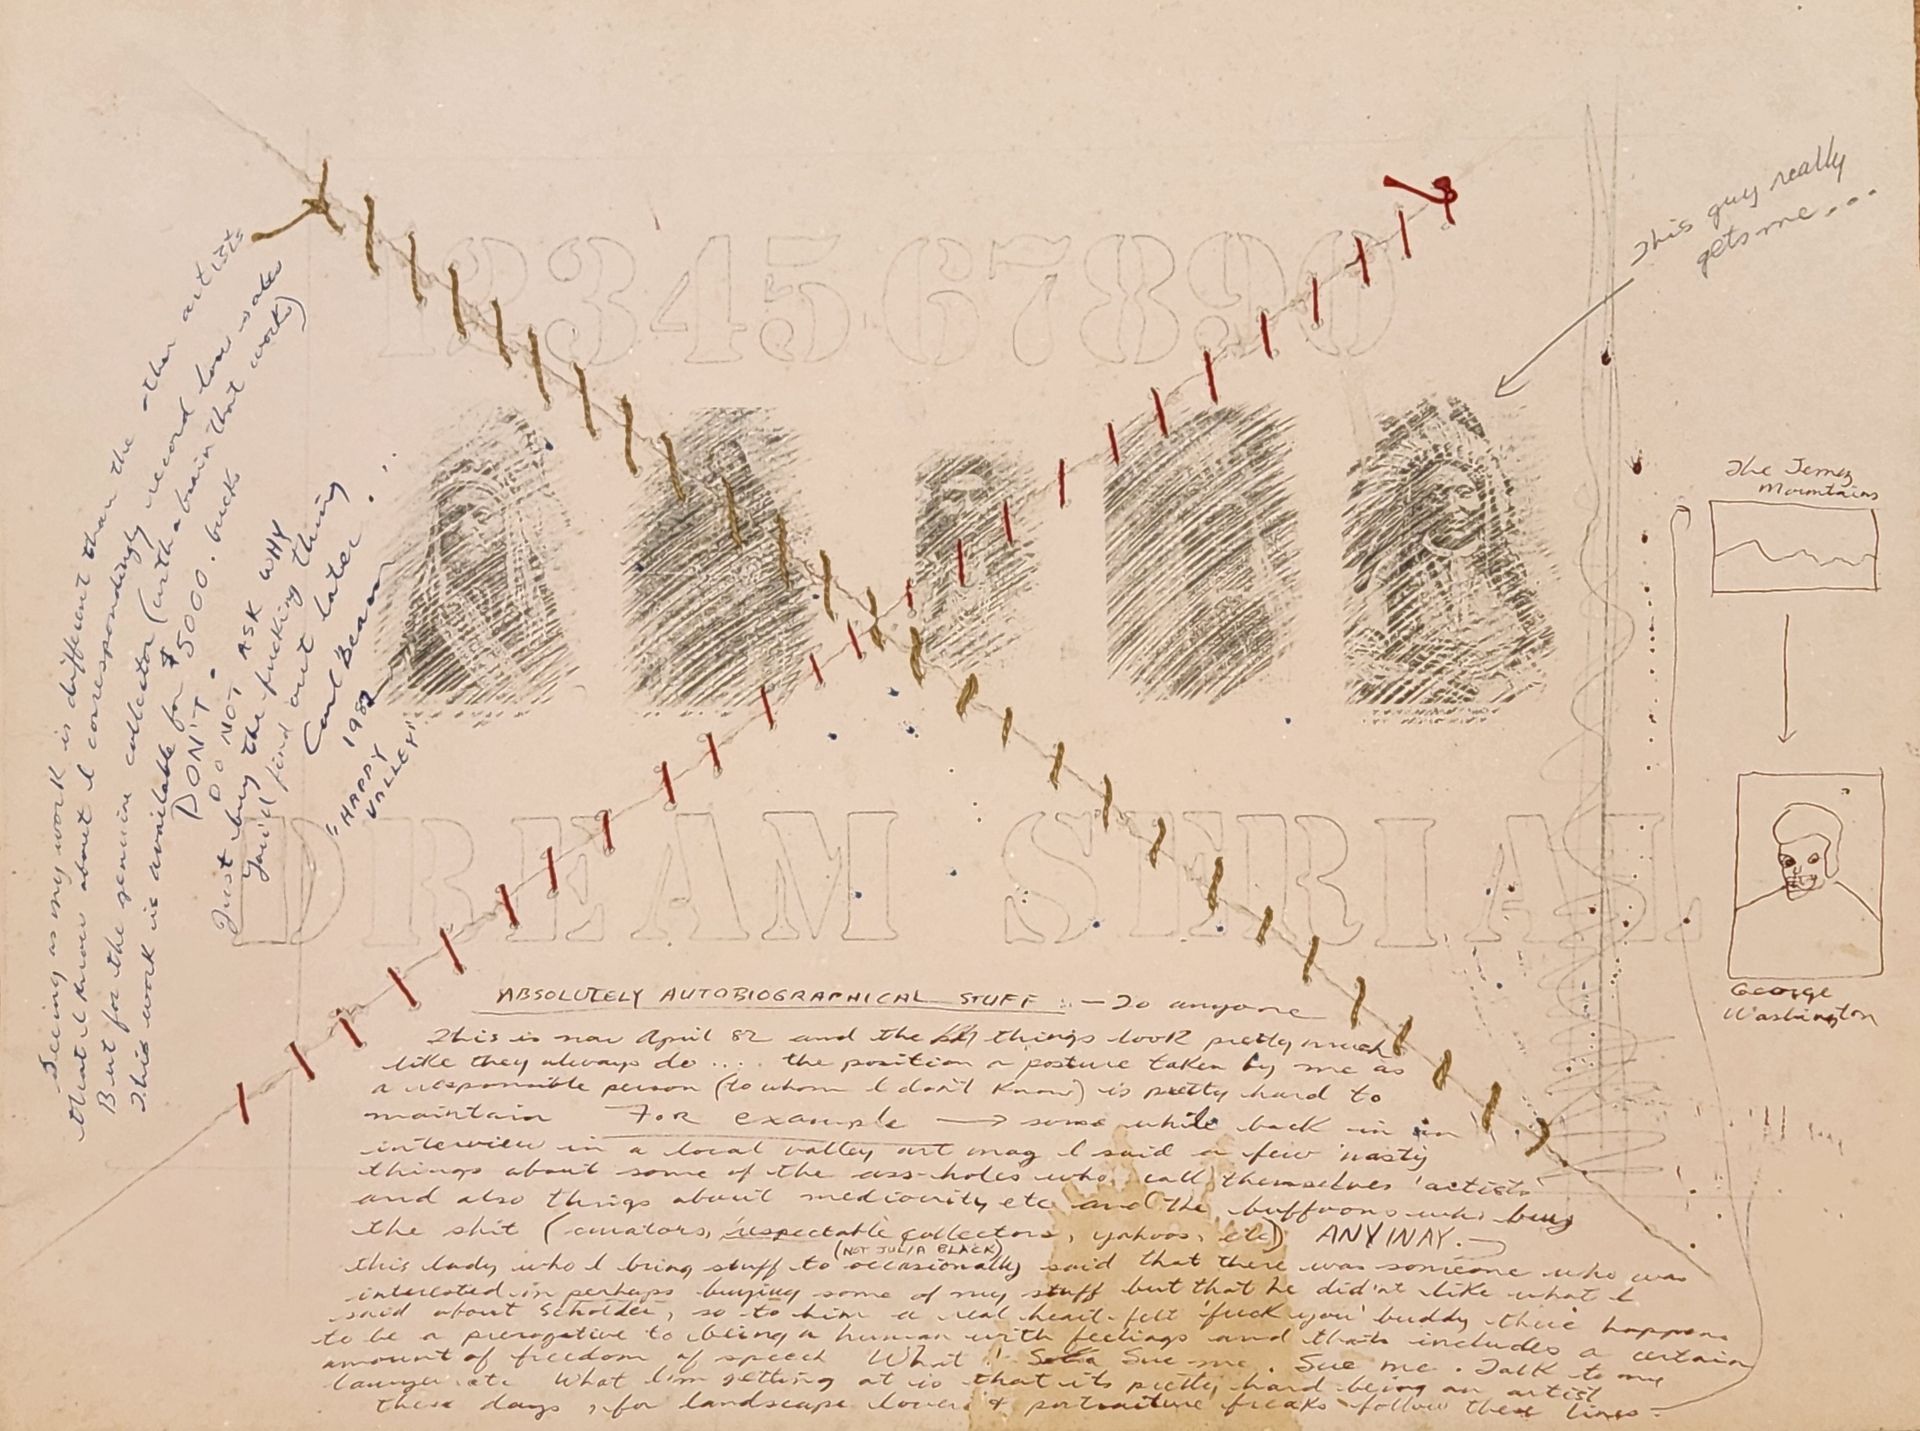 Seeing as my work is different than the other artists
that I know about I correspondingly record low sales
But for the genuine collector (with a brain that works)
This work is available for $5000. bucks
DON'T.
DO NOT ASK WHY
Just buy the fucking thing
You'll find out later...
Carl Beam
1982
"HAPPY
VALLEY"
1234567890
This guy really
gets me...
The Jemez
Mountains
George
Washington
DREAM SERIAL
ABSOLUTELY AUTOBIOGRAPHICAL STUFF :- To anyone
This is now April 82 and the things look pretty much
like they always do.... the position or posture taken by me as
a responsible person (to whom I don't know) is pretty hard to
maintain For example → some while back in an
interview in a local valley art mag I said a few nasty
things about some of the ass-holes who call themselves 'artists'
and also things about mediocrity etc and the buffoons who buy
the shit (curators, respectable collectors, yahoos, etc) ANYWAY.
(NOT JULIA BLACK)
this lady who I bring stuff to occasionally said that there was someone who was
interested in perhaps buying some of my stuff but that he did'nt like what I
said about Scholder, so to him a real heart-felt 'fuck you' buddy there happens
to be a prerogative to being a human with feelings and thats includes a certain
amount of freedom of speech What! Sue me. Sue me. Talk to my
lawyer etc. What I'm getting at is that its pretty hard being an artist
these days, for landscape lovers & portraiture freaks follow these lines